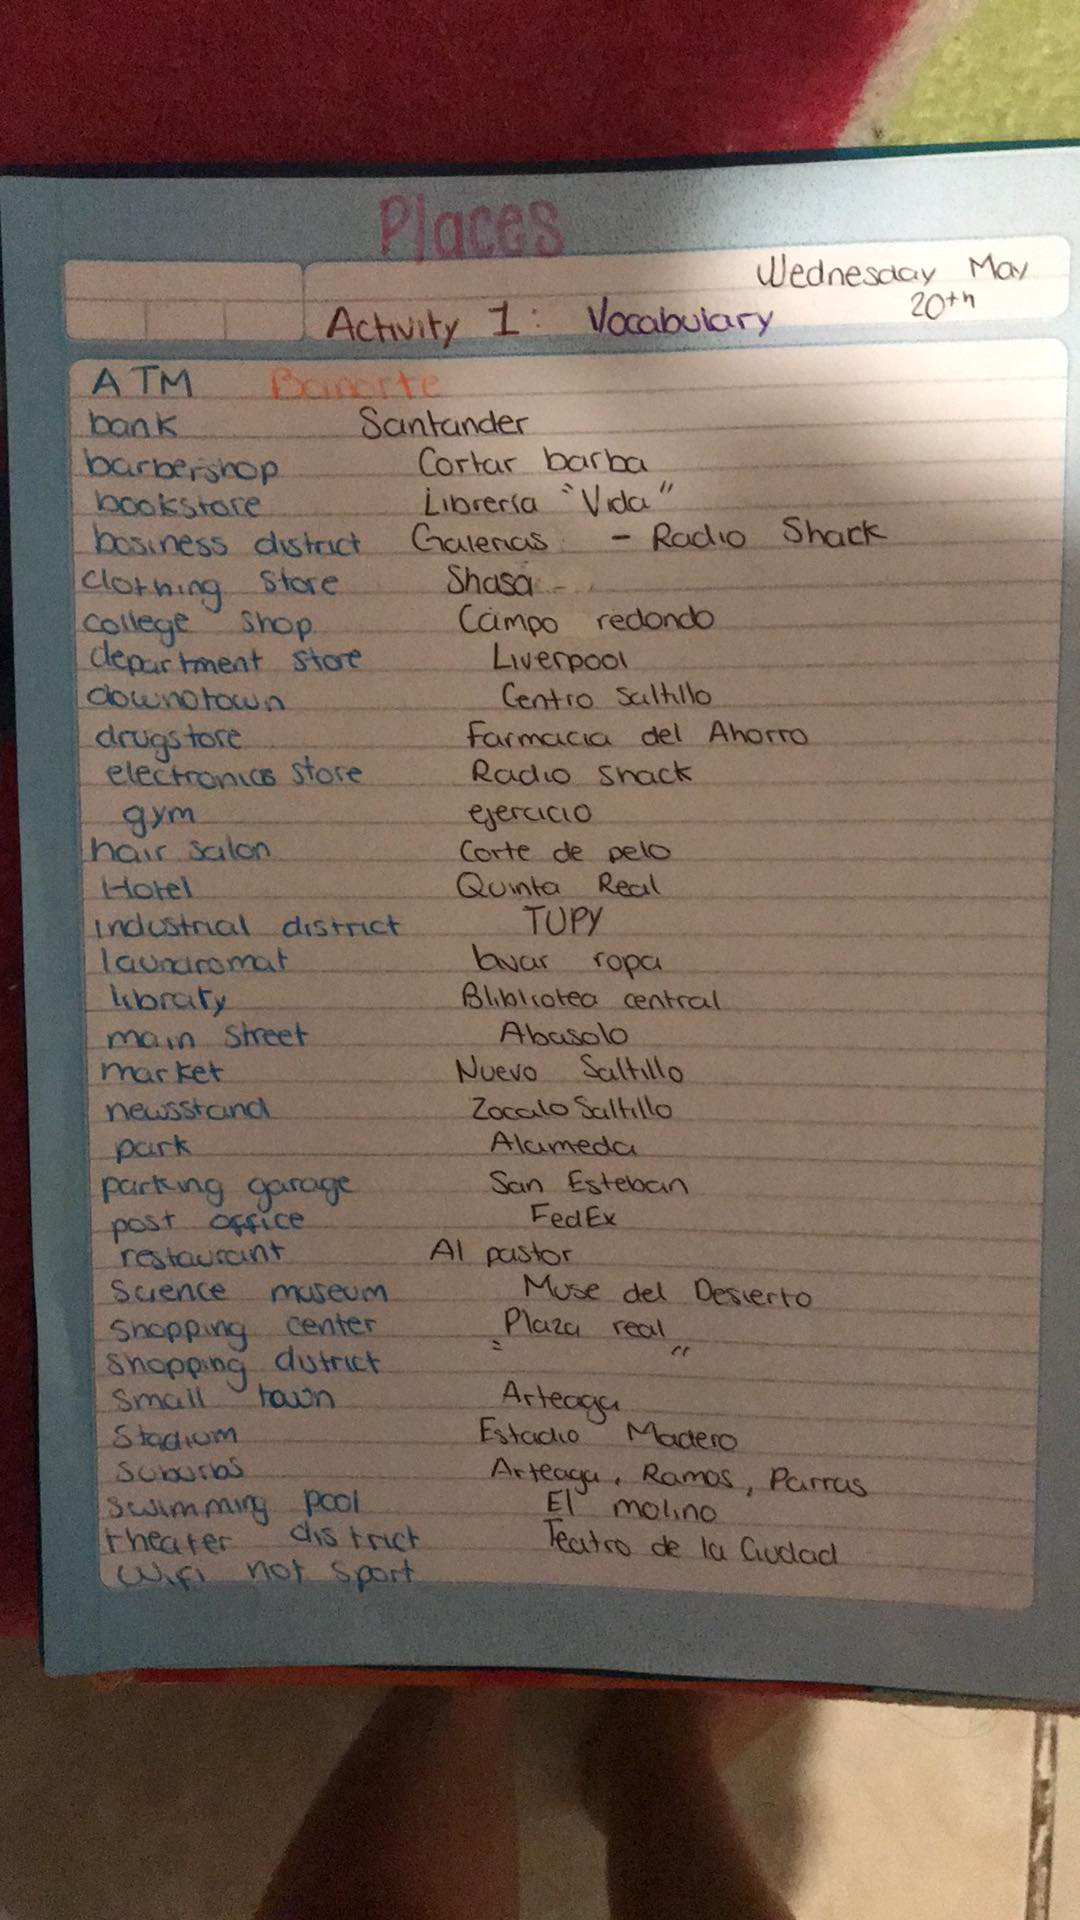 Places
Wednesday May
20th
Activity 1: Vocabulary
ATM Banorte
bank Santander
barbershop Cortar barba
bookstore Librería "Vida"
bosiness district Galerias - Radio Shack
clothing store Shasa
college shop Campo redondo
department store Liverpool
downotown Centro Saltillo
drugstore Farmacia del Ahorro
electronics store Radio shack
gym ejercicio
hair salon Corte de pelo
Hotel Quinta Real
industrial district TUPY
laundromat lavar ropa
library Blibliotea central
main street Abasolo
market Nuevo Saltillo
newsstand Zocalo Saltillo
park Alameda
parking garage San Esteban
post office FedEx
restaurant Al pastor
Science museum Muse del Desierto
shopping center "Plaza real"
shopping district
small town Arteaga
Stadium Estadio Madero
suburbs Arteaga, Ramos, Parras
swimming pool El molino
theater district Teatro de la Ciudad
Wifi not sport